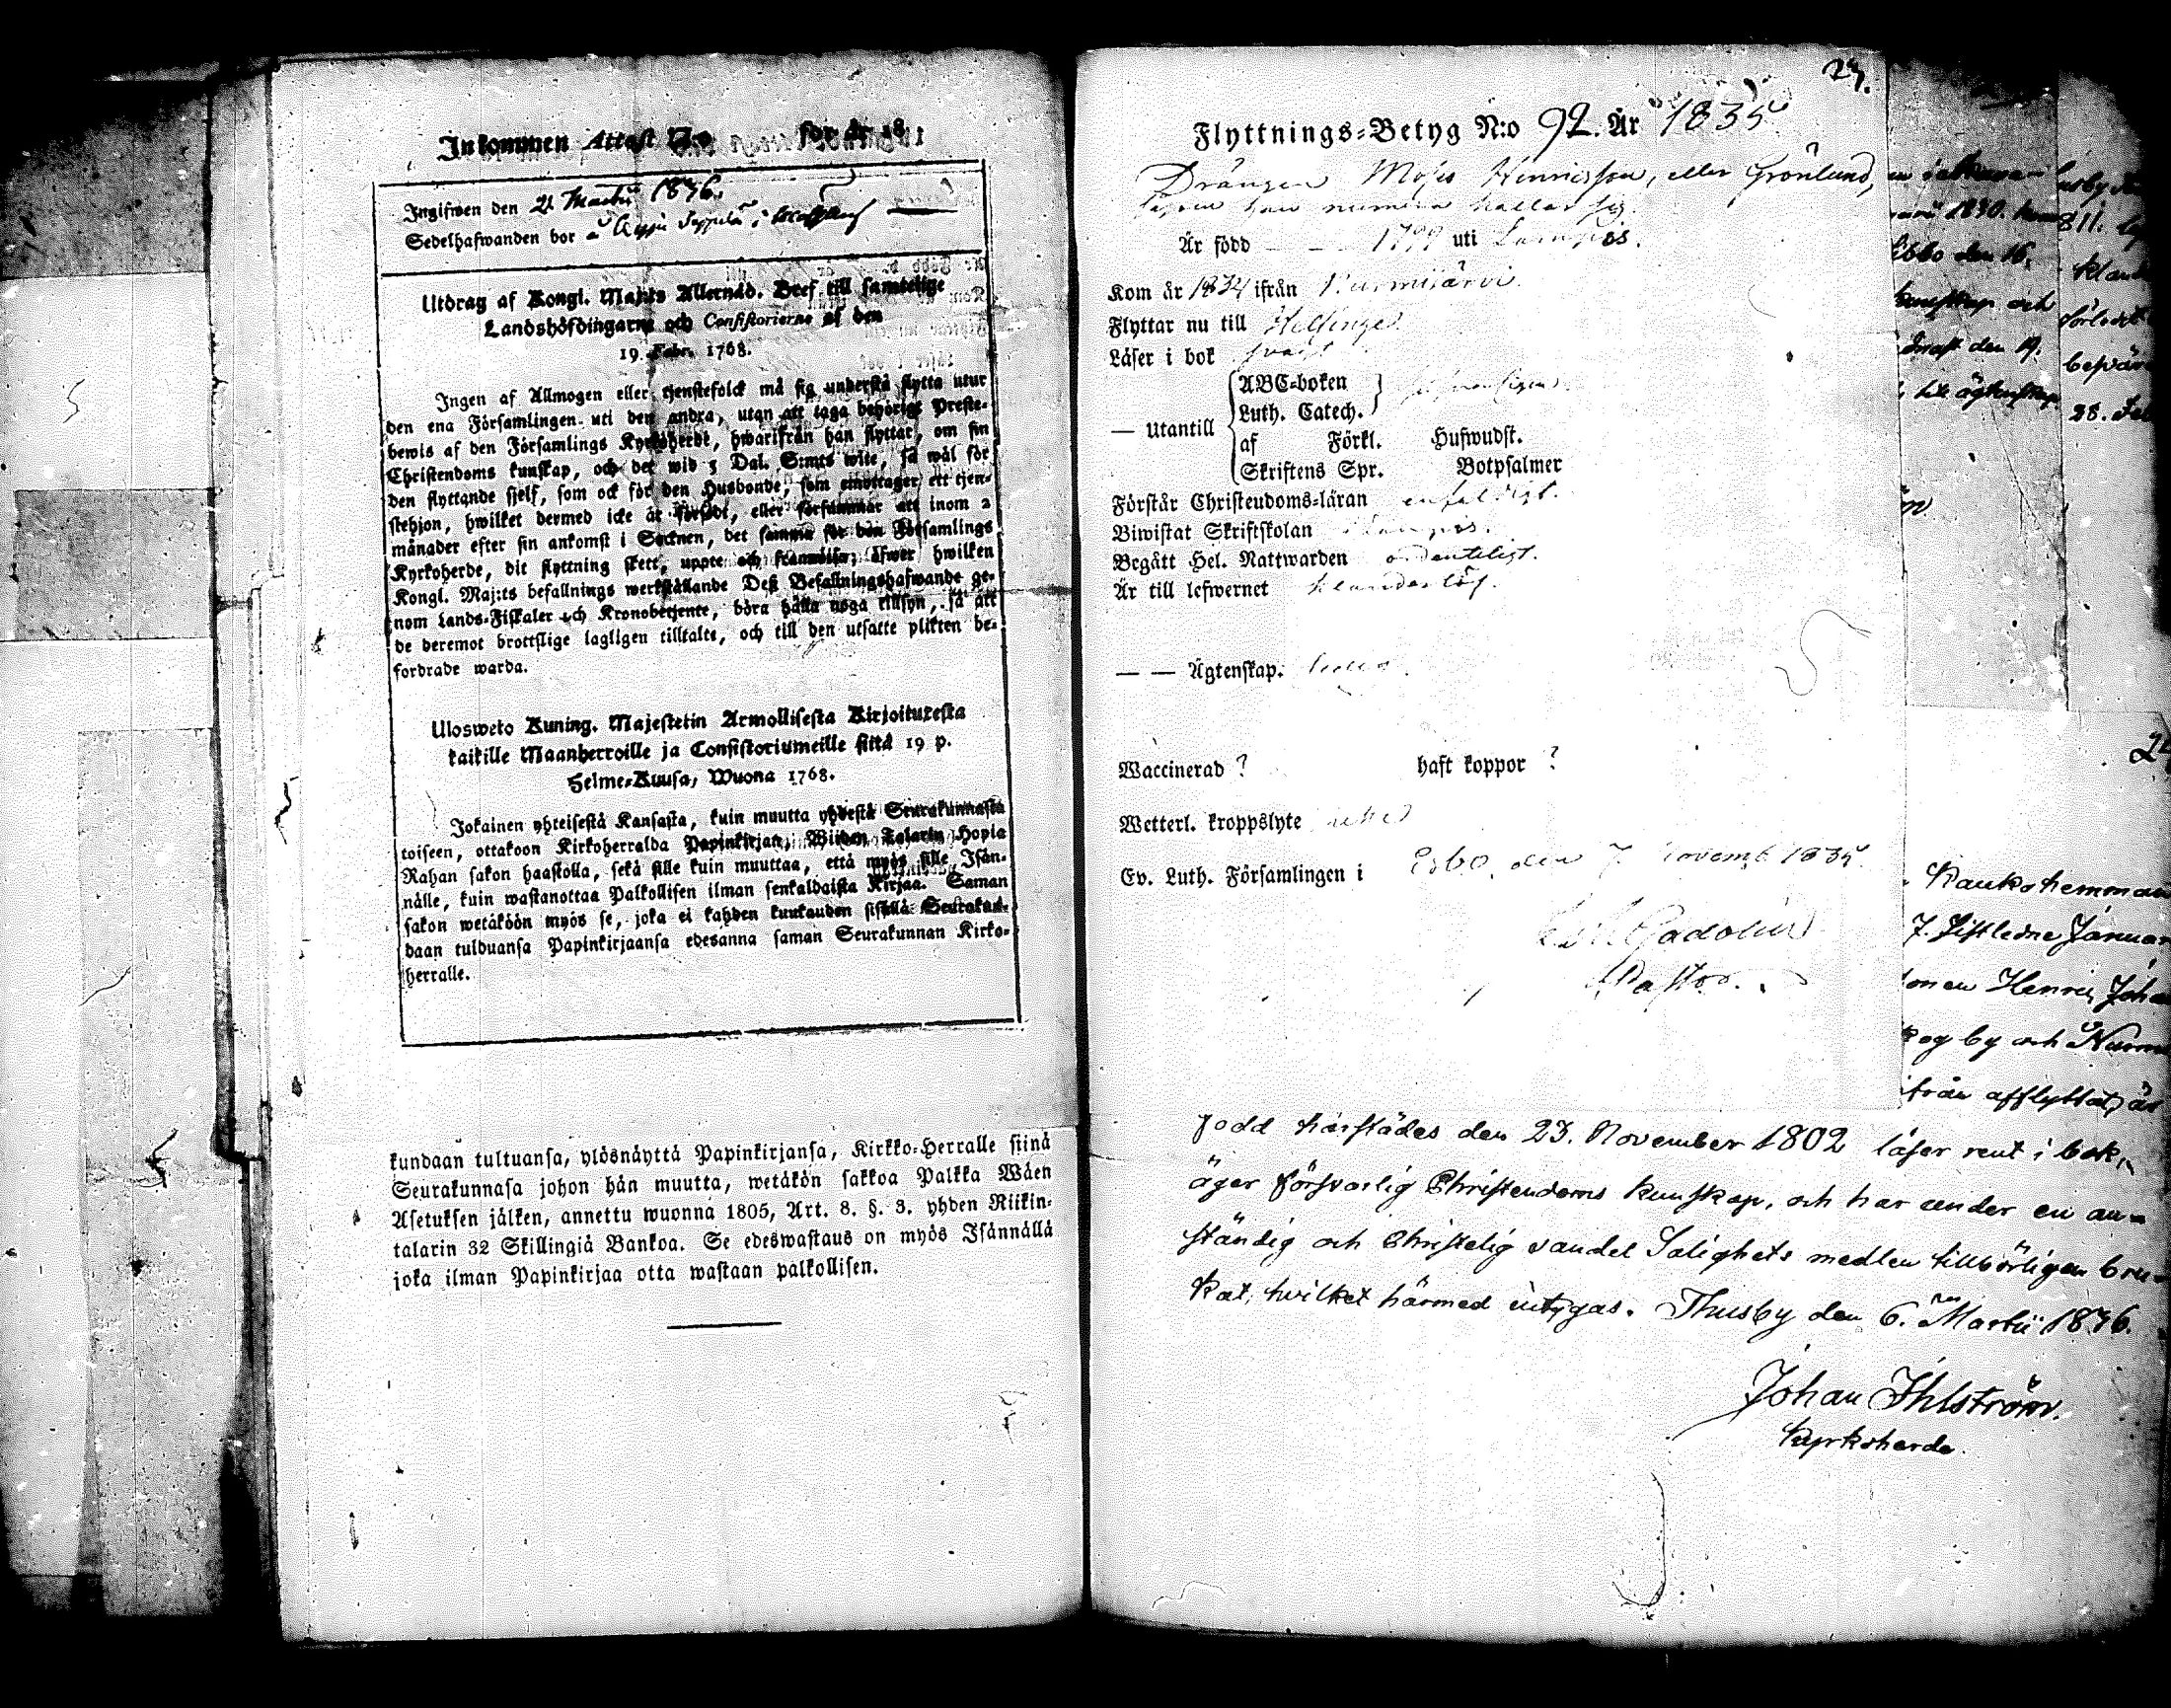 Inkommen Attest N:o för år 18
Ingifwen den 21 Martii 1836.
Sedelhafwanden bor å
Utdrag af Kongl. Maj:ts Allernåd. Bref till samtelige
Landshöfdingarne och Consistorierne af den
19 Febr. 1768.
Ingen af Allmogen eller tjenstefolck må sig understå flytta utur
den ena Församlingen uti den andra, utan att taga behörigt Preste-
bewis af den Församlings Kyrkoherde, hwarifrån han flyttar, om sin
Christendoms kunskap, och det wid 5 Dal. S:mts wite, så wäl för
den flyttande sjelf, som ock för den Husbonde, som emottager ett tjen-
stehjon, hwilket dermed icke är försedt, eller försummar att inom 2
månader efter sin ankomst i Socknen, det samma för den Församlings
Kyrkoherde, dit flyttning skett, uppte och framwisa; äfwer hwilken
Kongl. Maj:ts befallnings werkställande Deß Befallningshafwande ge-
nom Lands-Fiskaler och Kronobetjente, böra hålla noga tillsyn, så att
de deremot brottslige lagligen tilltalte, och till den utsatte plikten be-
fordrade warda.
Ulosweto Kuning. Majestetin Armollisesta Kirjoituxesta
kaikille Maanherroille ja Consistoriumeille siitä 19 p.
Helme-Kuusa, Wuona 1768.
Jokainen yhteisestä Kansasta, kuin muutta yhdestä Seurakunnasta
toiseen, ottakoon Kirkoherralda Papinkirjan, Wiiden Talarin Hopia
Rahan sakon haastolla, sekä sille kuin muuttaa, että myös sille Isän-
nälle, kuin wastanottaa Palkollisen ilman senkaldaista Kirjaa. Saman
sakon wetäköön myös se, joka ei kahden kuukauden sisällä Seurakun-
daan tulduansa Papinkirjaansa edesanna saman Seurakunnan Kirko-
herralle.
kundaan tultuansa, ylösnäyttä Papinkirjansa, Kirkko-Herralle siinä
Seurakunnasa johon hän muutta, wetäkön sakkoa Palkka Wäen
Asetuksen jälken, annettu wuonna 1805, Art. 8. §. 3. yhden Riikin-
talarin 32 Skillingiä Bankoa. Se edeswastaus on myös Isännällä
joka ilman Papinkirjaa otta wastaan palkollisen.
Flyttnings-Betyg N:o 92. År 1835
Drängen Moses Henricsson, eller Grönlund,
såsom han numera kallar sig.
Är född 1799 uti Lampis.
Kom år 1834 ifrån Nurmijärvi.
Flyttar nu till Helsinge.
Läser i bok svagt
— Utantill
ABC-boken
Luth. Catech.
af Förkl. Hufwudst.
Skriftens Spr. Botpsalmer
Förstår Christendoms-läran enfaldigt.
Biwistat Skriftskolan i Lampis.
Begått Hel. Nattwarden ordenteligt.
Är till lefwernet klanderlös.
— — Ägtenskap. ledig.
Waccinerad? haft koppor?
Wetterl. kroppslyte intet
Ev. Luth. Församlingen i Esbo, den 7 Novemb. 1835.
Gadolin
Pastor.
född härstädes den 23. November 1802 läser rent i bok,
äger försvarlig Christendoms kunskap, och har under en an-
ständig och Christelig vandel Salighets medlen tillbörligen bru-
kat, hvilket härmed intygas. Thusby den 6. Martii 1836.
Johan Ihlström.
Kyrkoherde.
Kauko hemman
7. Sistledne Januar
Henric Joha
by och Nurm
från afflyttat, är